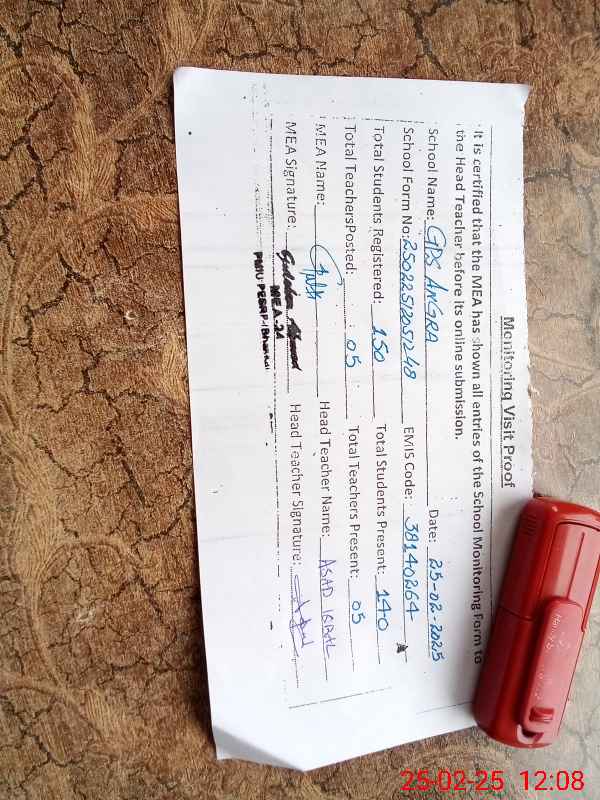 Monitoring Visit Proof
It is certified that the MEA has shown all entries of the School Monitoring Form to
the Head Teacher before its online submission.
School Name: GPS ANGRA Date: 25-02-2025
School Form No: 25022512051248 EMIS Code: 38140264
Total Students Registered: 150 Total Students Present: 140
Total TeachersPosted: 05 Total Teachers Present: 05
MEA Name: Head Teacher Name: ASAD IQBAL
MEA Signature: Head Teacher Signature:
MEA-24
25-02-25 12:08